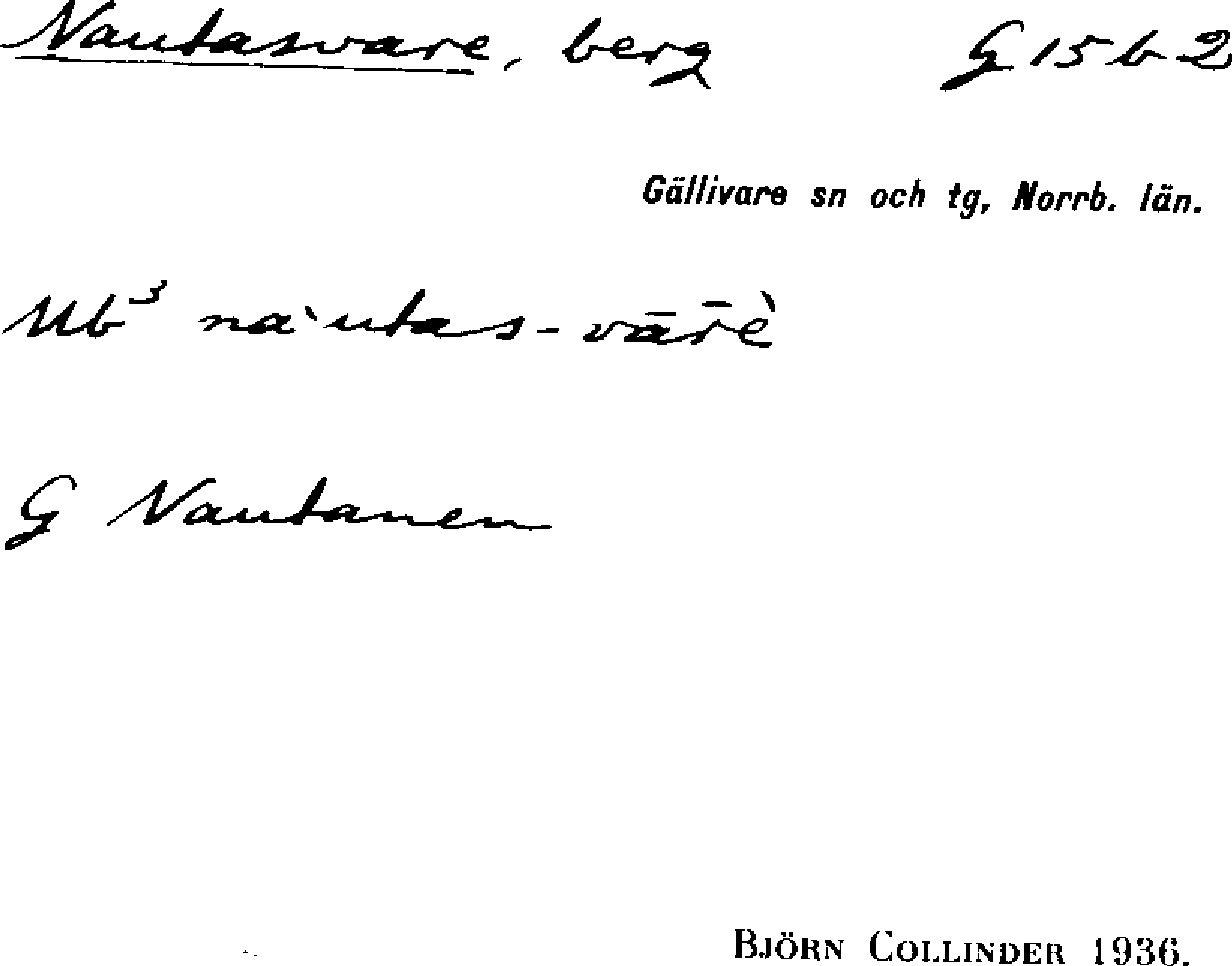 Nautasvare, berg G 15 b 2
Gällivare sn och tg, Norrb. län.
Ub³ na`utas-vār̄è
G Nautanen
BJÖRN COLLINDER 1936.